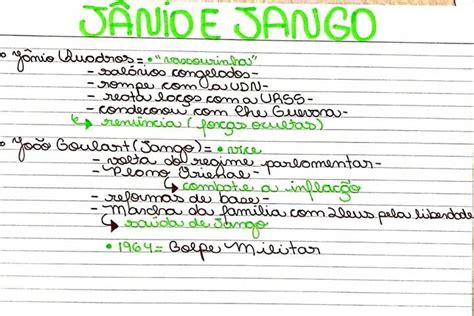 JÂNIO E JANGO
• Jânio Quadros = • "vassourinha"
- salários congelados -
- rompe com a UDN -
- reata laços com a URSS -
- condecorou com Che Guevara -
↳ renúncia (forças ocultas)
• João Goulart (Jango) = • vice
- volta do regime parlamentar -
- Plano Trienal -
↳ combate a inflação
- reformas de base -
- Marcha da família com Deus pela liberdade
↳ saída de Jango
• 1964 = Golpe Militar